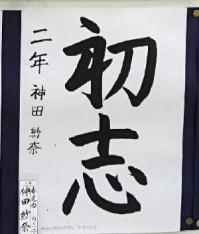 初志
二年 神田 紗奈
神田紗奈